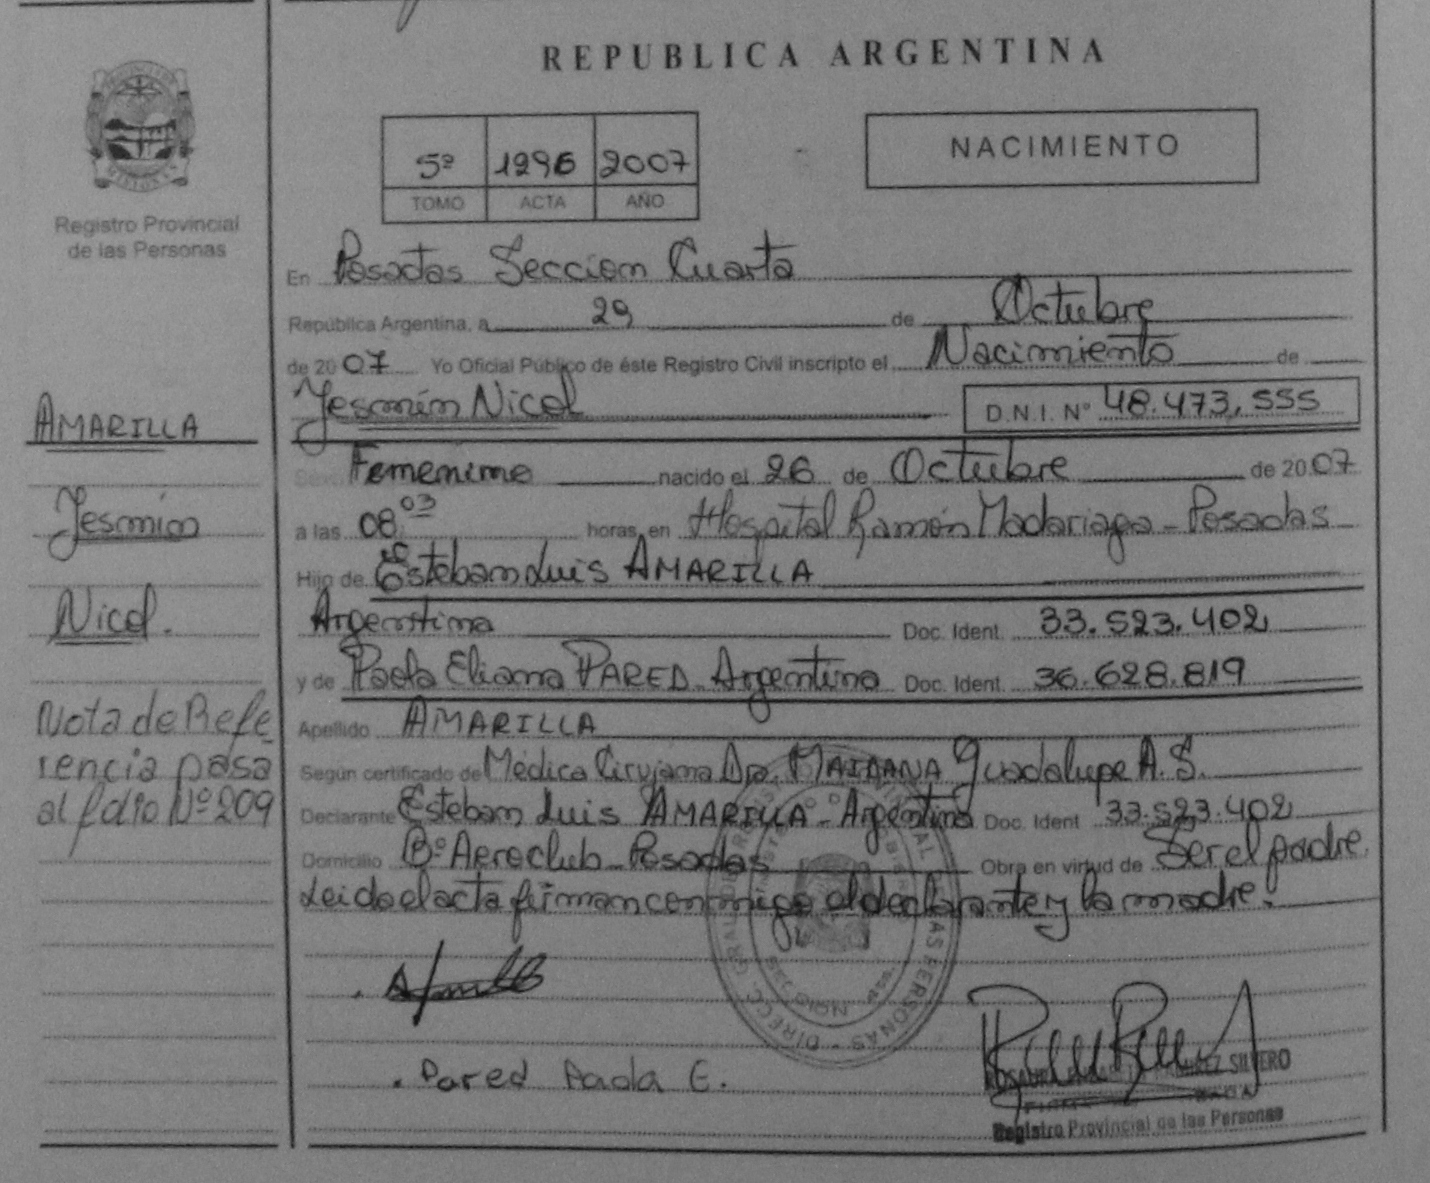 REPUBLICA ARGENTINA
NACIMIENTO
5º 1296 2007
TOMO ACTA AÑO
MISIONES
Registro Provincial
de las Personas
En Posadas Seccion Cuarta
República Argentina, a 29 de Octubre
de 2007 Yo Oficial Público de éste Registro Civil inscripto el Nacimiento de
Yesmín Nicol D.N.I. Nº 48.473.555
AMARILLA
Sexo Femenino nacido el 26 de Octubre de 2007
Yesmín
a las 08 03 horas, en Hospital Ramón Madariaga - Posadas
Hijo de Esteban Luis AMARILLA
Nicol.
Argentino Doc. Ident. 33.523.402
y de Paola Eliana PARED - Argentina Doc. Ident. 36.628.819
Nota de Refe
rencia pasa
al folio Nº 209
Apellido AMARILLA
Según certificado de Médica Cirujana Dra. MAIDANA Guadalupe A. S.
Declarante Esteban Luis AMARILLA - Argentino Doc. Ident 33.523.402
Domicilio Bº Aeroclub - Posadas Obra en virtud de Ser el padre.
Leido el acta firman conmigo el declarante y la madre.
. Pared Paola E.
SILVERO
Registro Provincial de las Personas